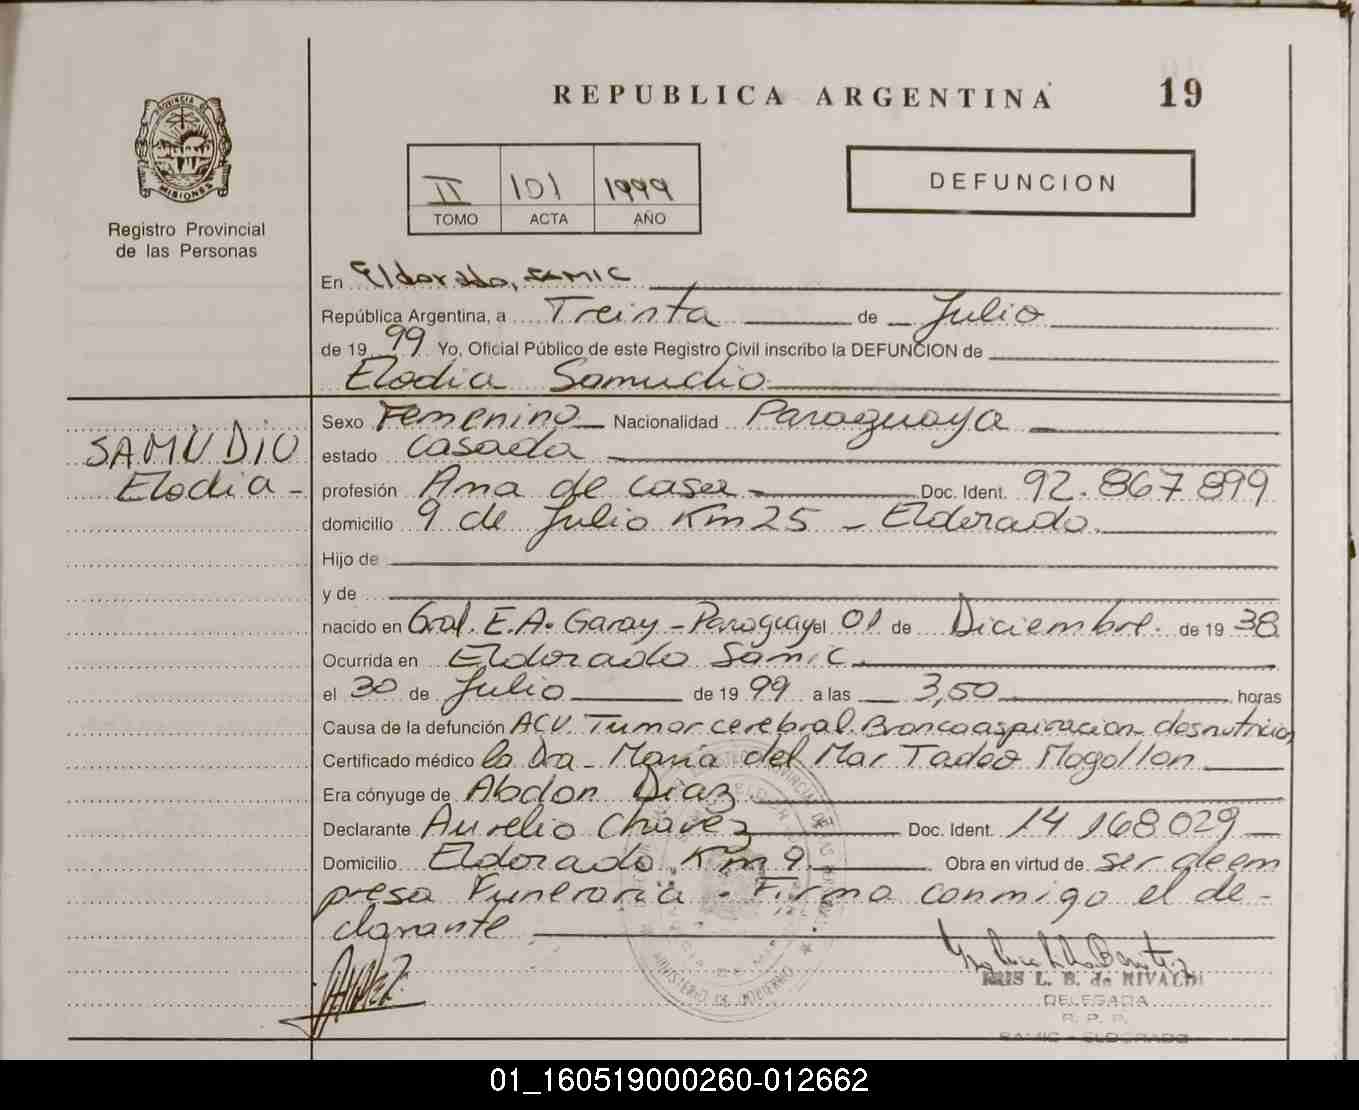 REPUBLICA ARGENTINA 19
PROVINCIA DE MISIONES
Registro Provincial
de las Personas
II 101 1999
TOMO ACTA AÑO
DEFUNCION
En Eldorado, SAMIC
República Argentina, a Treinta de Julio
de 19 99 Yo, Oficial Público de este Registro Civil inscribo la DEFUNCION de
Elodia Samudio
SAMUDIO
Elodia -
Sexo Femenino Nacionalidad Paraguaya
estado casada
profesión Ama de casa Doc. Ident. 92.867 899
domicilio 9 de Julio Km 25 - Eldorado.
Hijo de
y de
nacido en Gral. E.A. Garay - Paraguay el 01 de Diciembre. de 19 38
Ocurrida en Eldorado Samic.
el 30 de Julio de 19 99 a las 3,50 horas
Causa de la defunción ACV. Tumor cerebral. Broncoaspiracion - desnutricion
Certificado médico la Dra - Maria del Mar Tadeo Mogollon
Era cónyuge de Abdon Diaz
Declarante Aurelio Chavez Doc. Ident. 14 168 029
Domicilio Eldorado Km 9. Obra en virtud de ser de em
presa Funeraria - Firma conmigo el de-
clarante
IRIS L. B. de RIVALDI
DELEGADA
R. P. P.
SAMIC - ELDORADO
MINISTERIO DE GOBIERNO
01_160519000260-012662